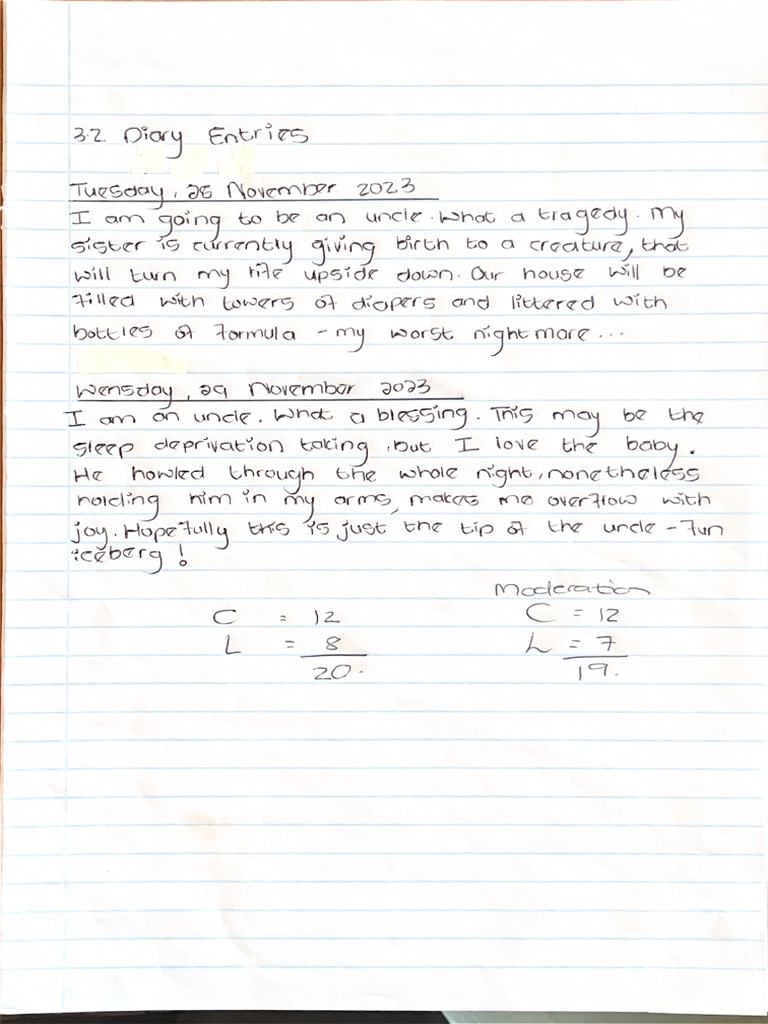 3.2. Diary Entries
Tuesday, 28 November 2023
I am going to be an uncle. What a tragedy. My
sister is currently giving birth to a creature, that
will turn my life upside down. Our house will be
filled with towers of diapers and littered with
bottles of formula - my worst nightmare...
Wensday, 29 November 2023
I am an uncle. What a blessing. This may be the
sleep deprivation talking, but I love the baby.
He howled through the whole night, nonetheless
holding him in my arms, makes me overflow with
joy. Hopefully this is just the tip of the uncle - fun
iceberg!
Moderation
C = 12 C = 12
L = 8 L = 7
20. 19.